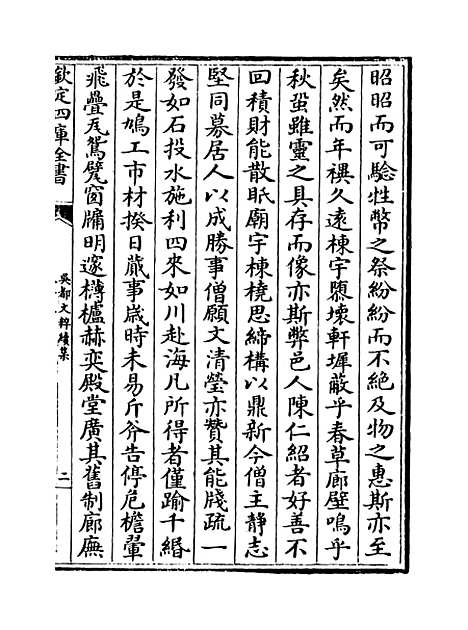 昭昭而可驗牲幣之祭紛紛而不絶及物之惠斯亦至
矣然而年禩久遠棟宇隳壊軒墀蔽乎春草廊壁鳴乎
秋蛩雖靈之具存而像亦斯弊邑人陳仁紹者好善不
回積財能散眂廟宇棟橈思締構以鼎新今僧主靜志
堅同募居人以成勝事僧願文清瑩亦贊其能牋疏一
發如石投水施利四來如川赴海凡所得者僅踰千緡
於是鳩工市材揆日蕆事歳時未易斤斧告停危檐翬
飛疊瓦鴛甃窗牖明邃欂櫨赫奕殿堂廣其舊制廊廡
欽定四庫全書
吳都文粹續集
二